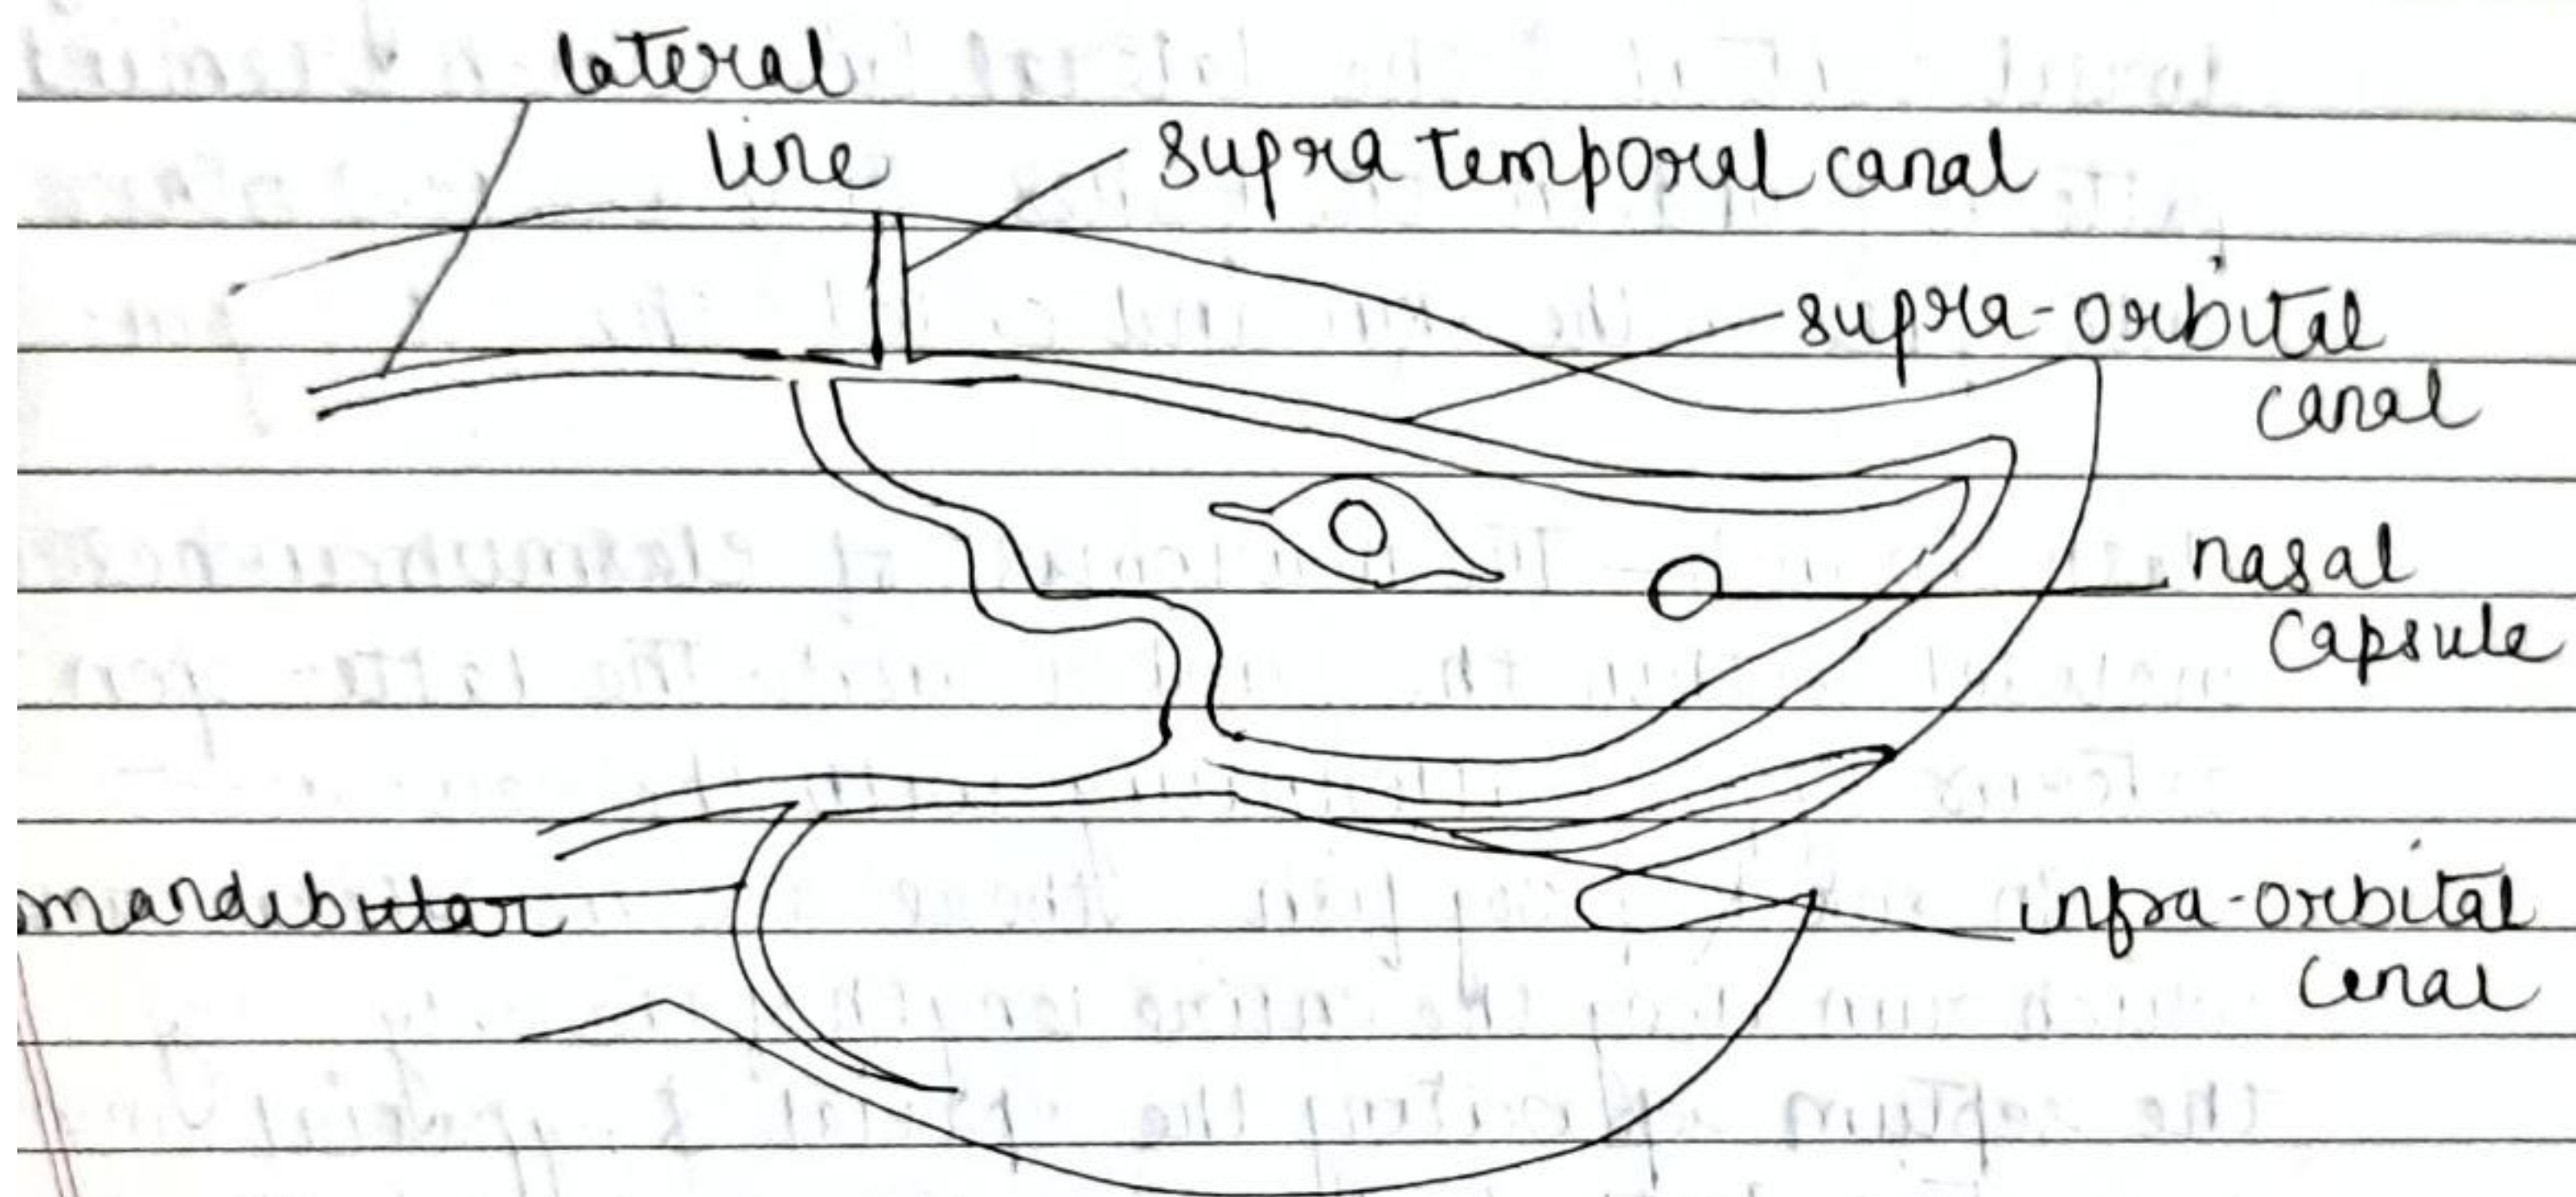 lateral
line
supra temporal canal
supra-orbital
canal
nasal
capsule
mandibular
infra-orbital
canal